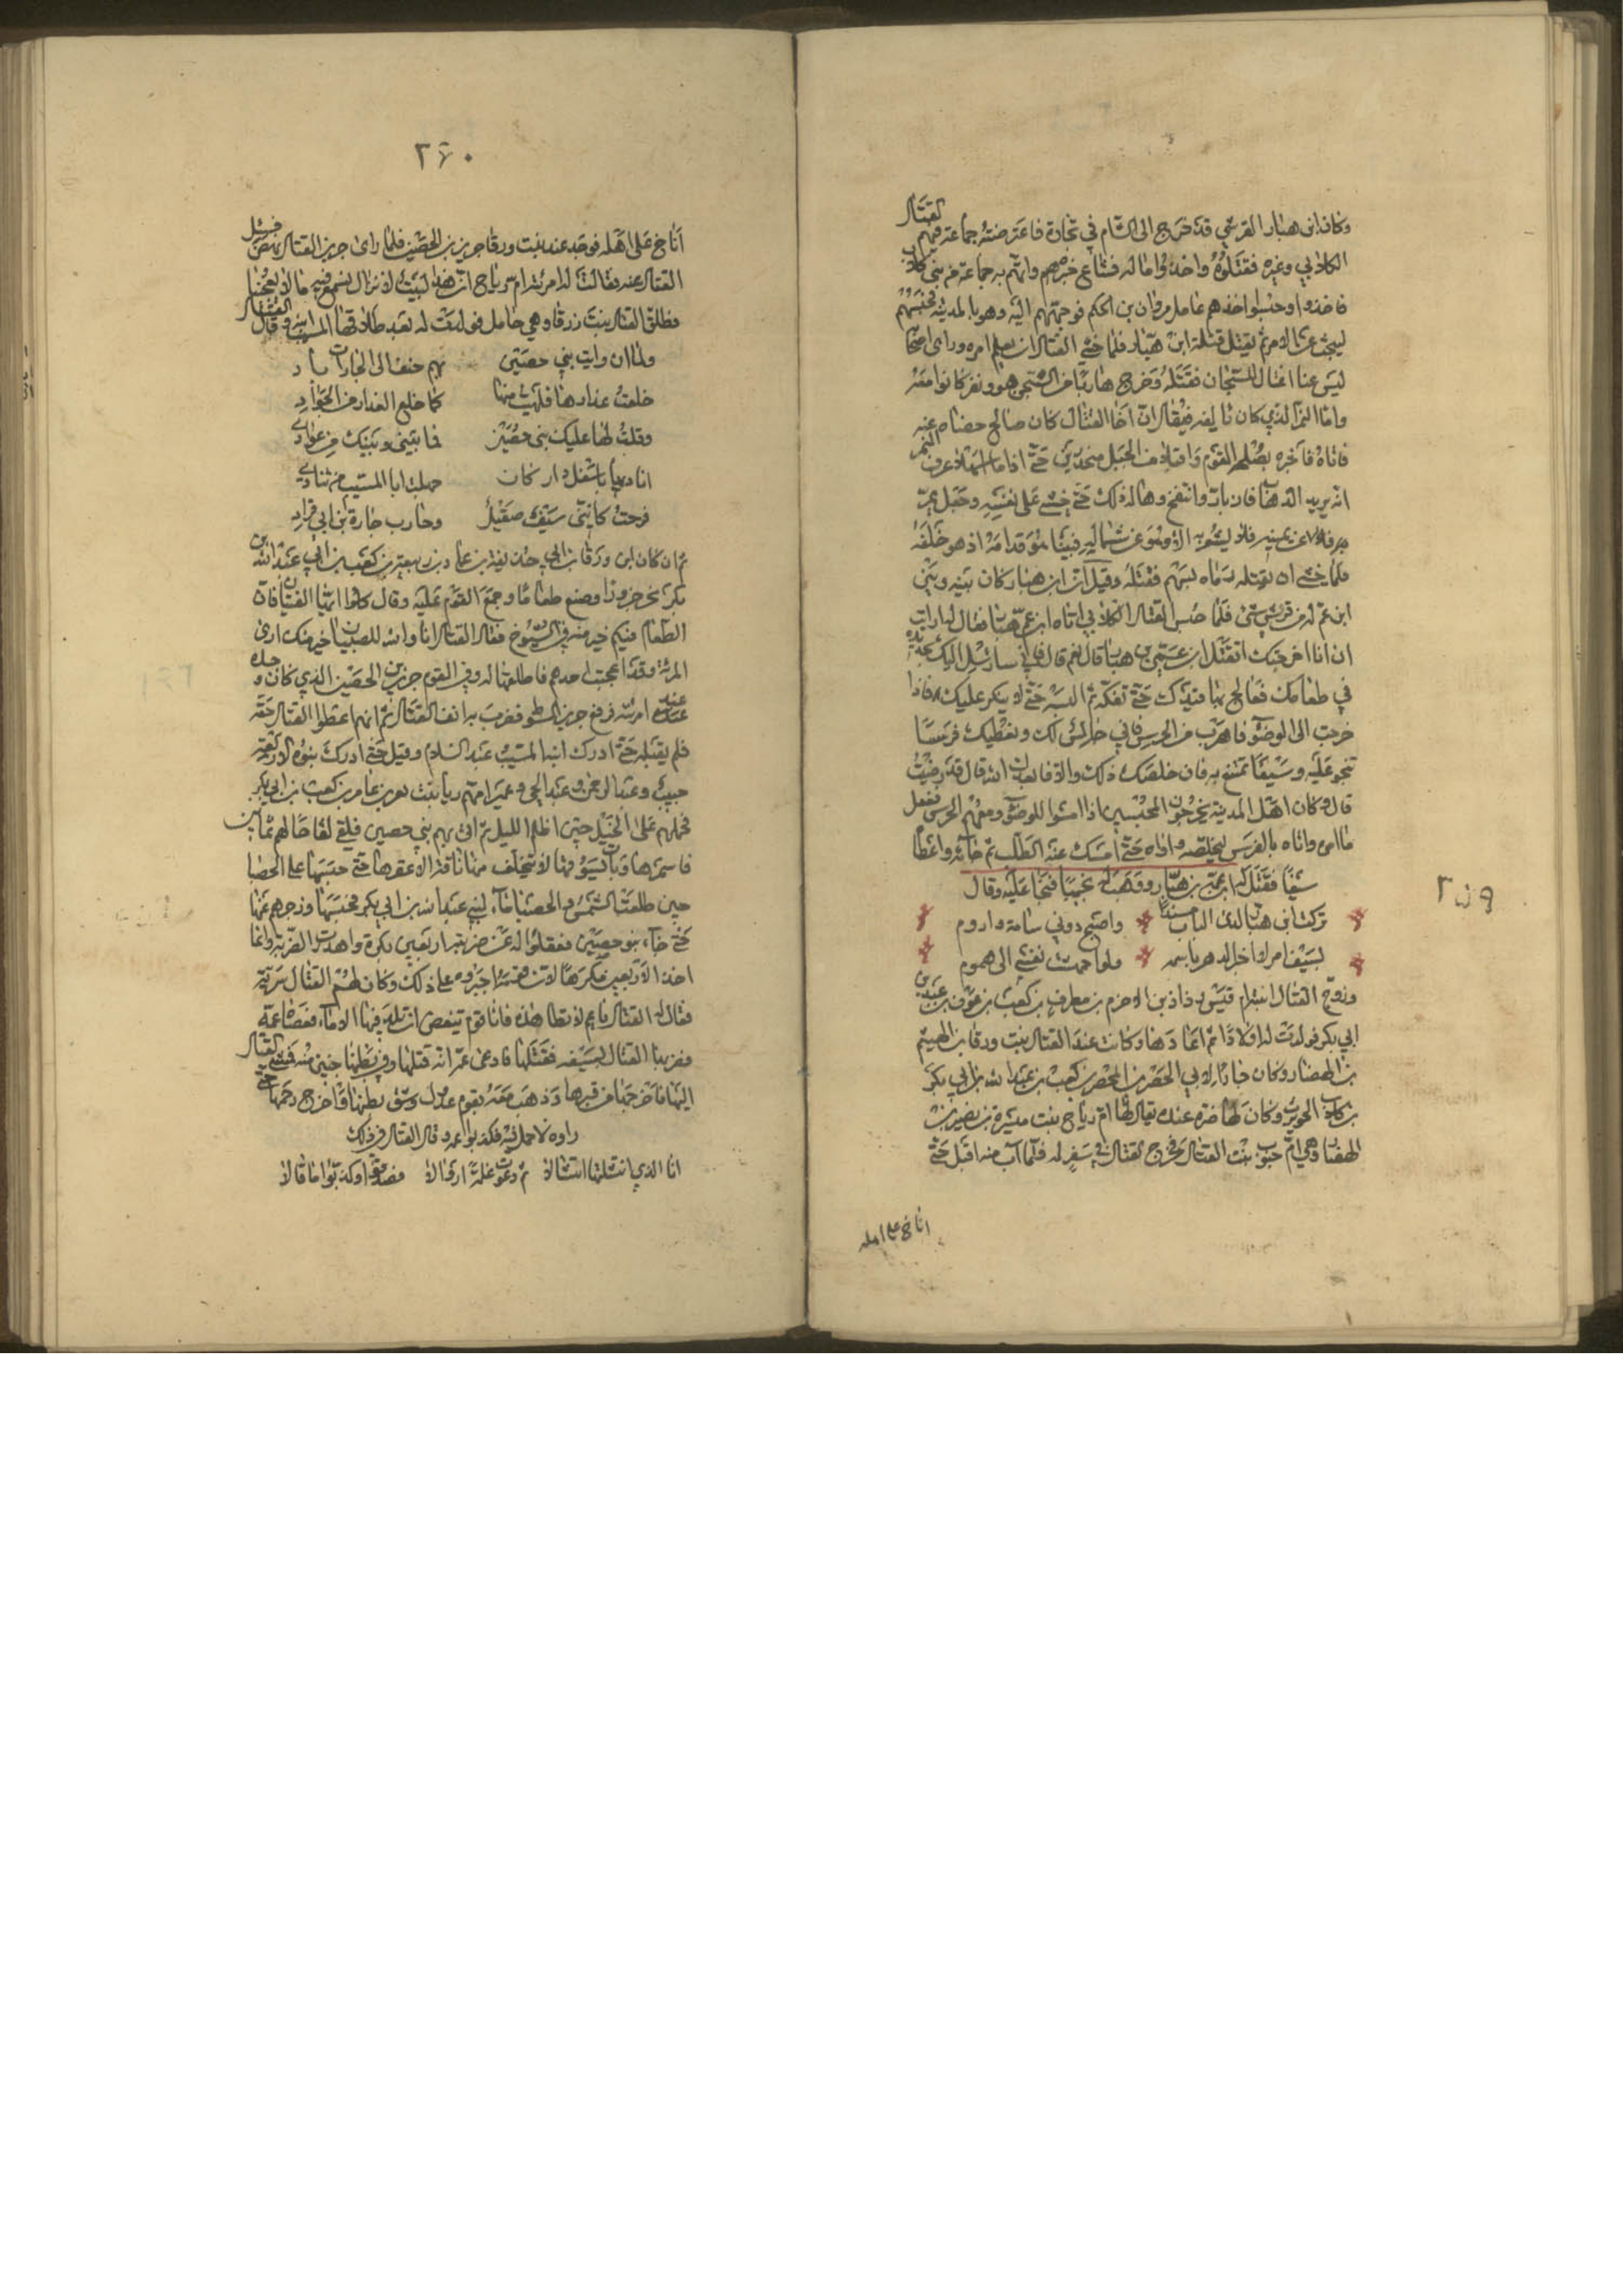 وكان ابن هبار القرشي قد خرج الى الشام في تجارة فاعترضته جماعة فيهم القتال
الكلابي وغيره فقتلوه واخذوا ماله فشاع خبرهم واتهم به جماعة من بني كلاب
فاخذوا وحبسوا اخذهم عامل مروان بن الحكم فوجههم اليه وهو بالمدينة فحبسهم
ليبحث عن الامر ثم يقتل قتلة ابن هبار فلما خشي القتال ان يعلم امره وراى اصحابه
ليس عنا اغتال السجان فقتله وخرج هاربا من السجن هو ونفر كانوا معه
واما النمر الذي كان يالفه فيقال ان اخا القتال كان صالح عنه
فاتاه فاخبره بصلح القوم واقبلا من الجبل منحدرين حتى اذا عرف النمر
انه يريد الذهاب وانتفخ وهاله ذلك حتى خشي على نفسه وجعل يمر
عن يمينه فلا يشعر به الا وهو عن شماله فبينا هو قدامه اذ هو خلفه
فلما خشي ان يقتله رماه بسهم فقتله وقيل ان ابن هبار كان بينه وبين
ابن عم له من قريش شيء فلما حبس القتال الكلابي اتاه ابن عم هبار فقال له ارايت
ان انا اخرجتك اتقتل ابن عمي هبار قال نعم قال فاني سارسل اليك بحديدة
في طعامك فعالج بها قيدك حتى تفكه ثم البسه حتى لا ينكر عليك فاذا
خرجت الى الوضوء فاهرب من الحرس فاني جالس لك ونعطيك فرسا
تنجو عليه وسيفا تمتنع به فان خلصك ذلك والا فابعدك الله قال قد رضيت
قال وكان اهل المدينة يخرجون المحبسين اذا امسوا للوضوء ومعهم الحرس ففعل
ما امره واتاه بالفرس ليخلصه واواه حتى امسك عنه الطلب ثم جاء به واعطاه
سيفا فقتل له ابن عمه بن هبار ووهب له نجيبا فنجا عليه وقال
تركت ابن هبار لدى الباب مسندا واصبح دوني شامة واروم
بسيف امرء لا اخبر الدهر باسمه ولو اجهشت نفسي الى هموم
وزوج القتال ابنته ام قيس بن الاحزم بن مطرف بن كعب بن عوف بن عبد بن
ابي بكر فولدت له اولادا ثم اغارها وكانت عند القتال بنت ورقا بن الهيثم
بن الهصار وكان جارا لابي الحصن بن الحصن بن كعب بن عبد الله بن ابي بكر
بن كلاب وكان لها ضرة عنده يقال لها ام رياح بنت ميسرة بن نفير بن
الهصار وهي ام جنوب بنت القتال فخرج القتال في سفر له فلما آب منه اقبل حتى
اناخ على اهله
٢٥٩
٢٦٠
اناخ على اهله فوجد عند بنت ورقا جرير بن الحصين فلما راى جرير القتال نهض فسئل
القتال عنه فقالت له امرئته ام رياح ان هذا لبيت لا نزال نسمع فيه ما لا يعجبنا
فطلق القتال بنت زرقا وهي حامل فولدت له بعد طلاقها المسيب ابنه وقال القتال
ولما ان رايت بني حصين بهم حنف الى الجارات باد
خلعت عذارها فلهيت عنها كما خلع العذار من الجواد
وقلت لها عليك بني حصين فما بيني وبينك من عوادي
حملت ابا المسيب من تنادي
فرحت كانني سيف صقيل وحارب جارة ابن ابي قراد
ثم ان كان ابن ورقا بن ربيعة بن كعب بن ابي عبد الله بن
بكر نحر جزورا وصنع طعاما وجمع القوم عليه وقال كلوا ايها الفتيان فان
الطعام فيكم خير منه في الشيوخ فقال القتال انا والله للصبيان خير منك ارى
المرئة وقد اعجبت احدهم فاطلعتها له وفي القوم جرير بن الحصين الذي كان وجده
عند امرئته فرفع جرير السوط فضرب به انف القتال ثم انهم اعطوا القتال حقه
فلم يقبله حتى ادرك ابنه المسيب عبد السلام وقيل حتى ادرك بنوه الاربعة
حبيب وعبد الرحمن وعبد الحي وعمير امهم ريا بنت نفر بن عامر بن كعب بن ابي بكر
فحملهم على الخيل حتى اظلم الليل ثم اتى بهم بني حصين فلقي لقاحا لهم ثمانين
فاسمرها وبات يسوقها لا تتخلف منها ناقة الا عقرها حتى حبسها على الحصا
حين طلعت الشمس والحصا ماء لبني عبد الله بن ابي بكر فحبسها وزجرهم عنها
حتى جاء بنو حصين فعقلوا له من ضربته اربعين بكرة واهدرت الضربة وانما
اخذ الاربعين بكرة مكرها لان قومه اجبروه على ذلك وكان لعم القتال سرية
فقال له القتال يا عم لا تطا هذه فانا قوم نبغض ان تلد فينا الاماء فعصاه عمه
فضربها القتال بسيفه فقتلها فادعى عمه انه قتلها وفي بطنها جنين منه فمشى القتال
اليها فاخرجها من قبرها وذهب معه بقوم عدول وشق بطنها فاخرج رحمها حتى
راوه لا حمل فيه فكذبوا عمه وقال القتال في ذلك
انا الذي انتشلتها انتشالا ثم دعوت غلمة ازوالا فصدقوا وكذبوا ما قالا